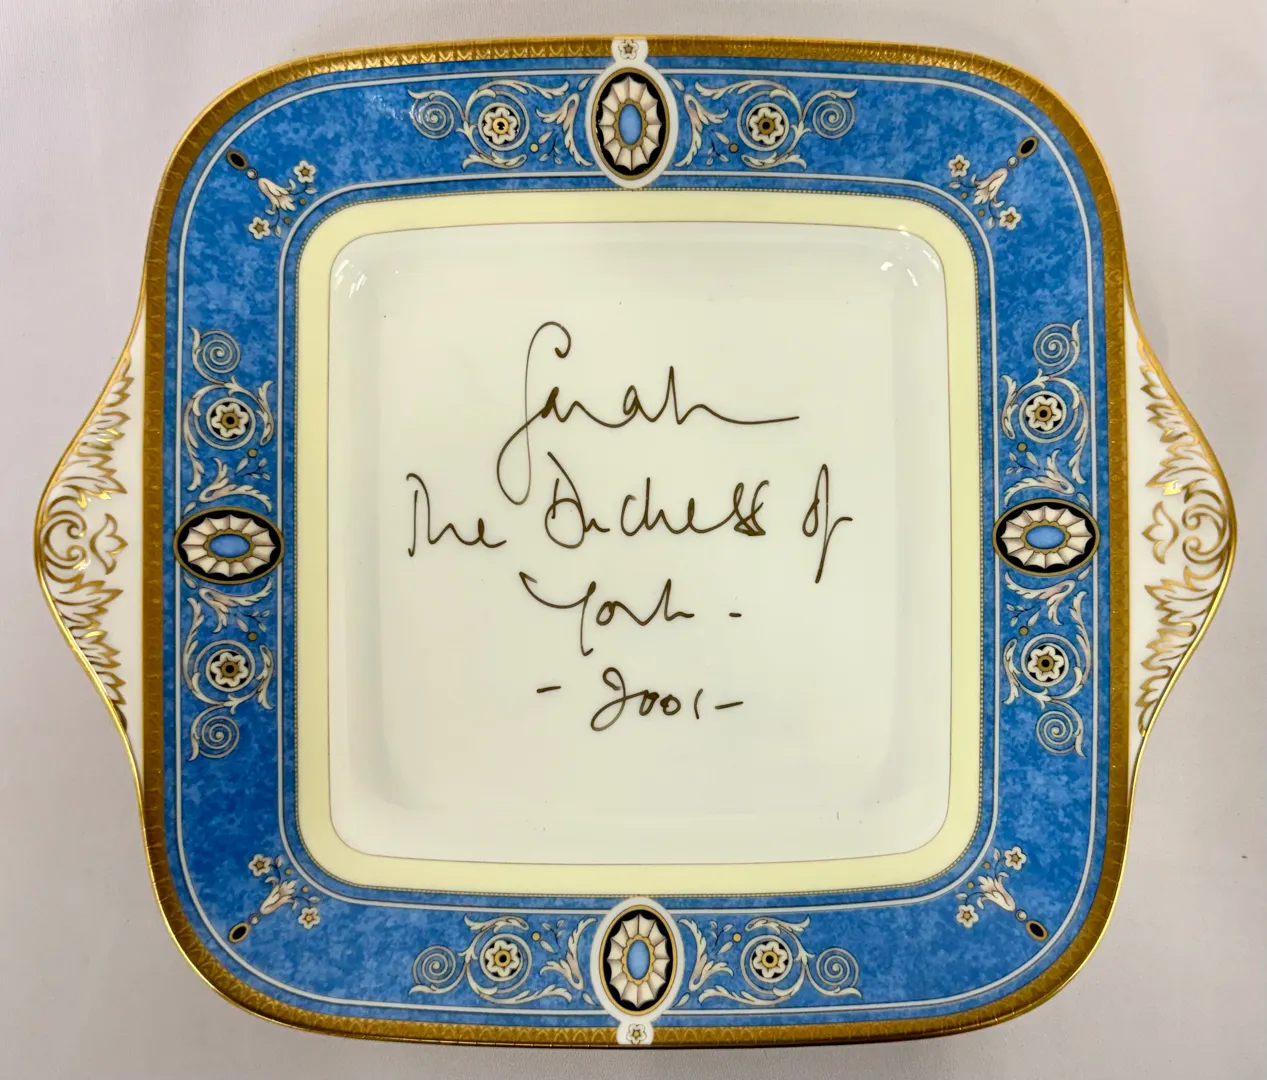 Sarah
The Duchess of
York -
- 2001 -